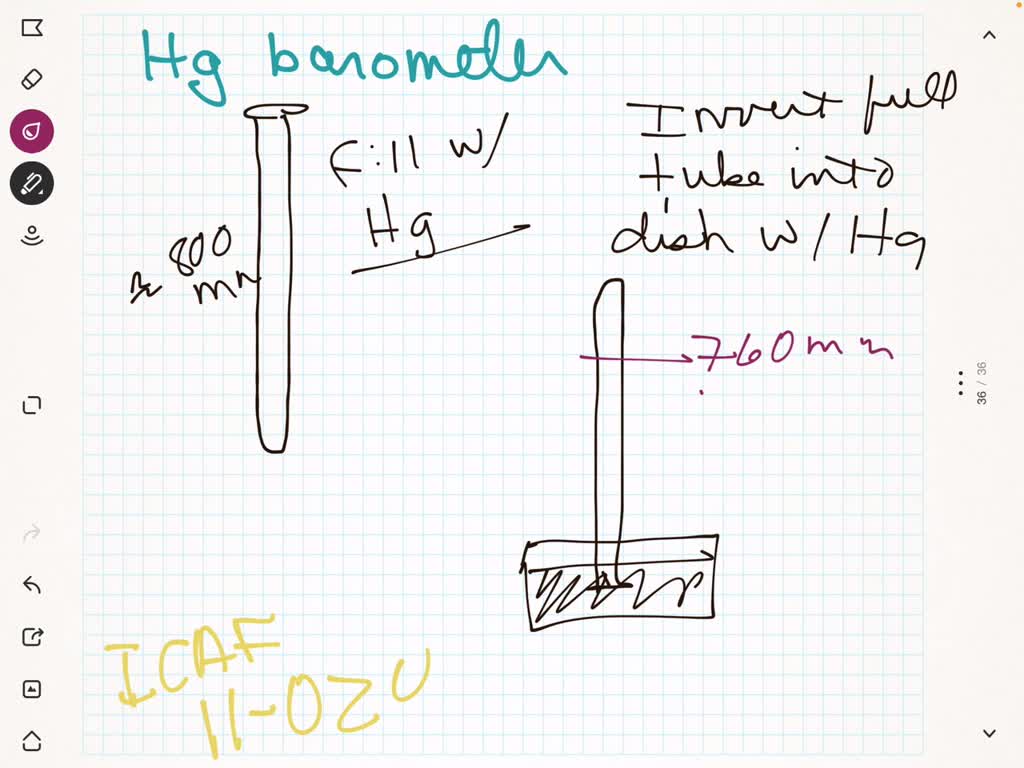 Hg barometer
fill w/
Hg
≈ 800
mm
Invert full
tube into
dish w/ Hg
760mm
36 / 36
ICAF
11-020